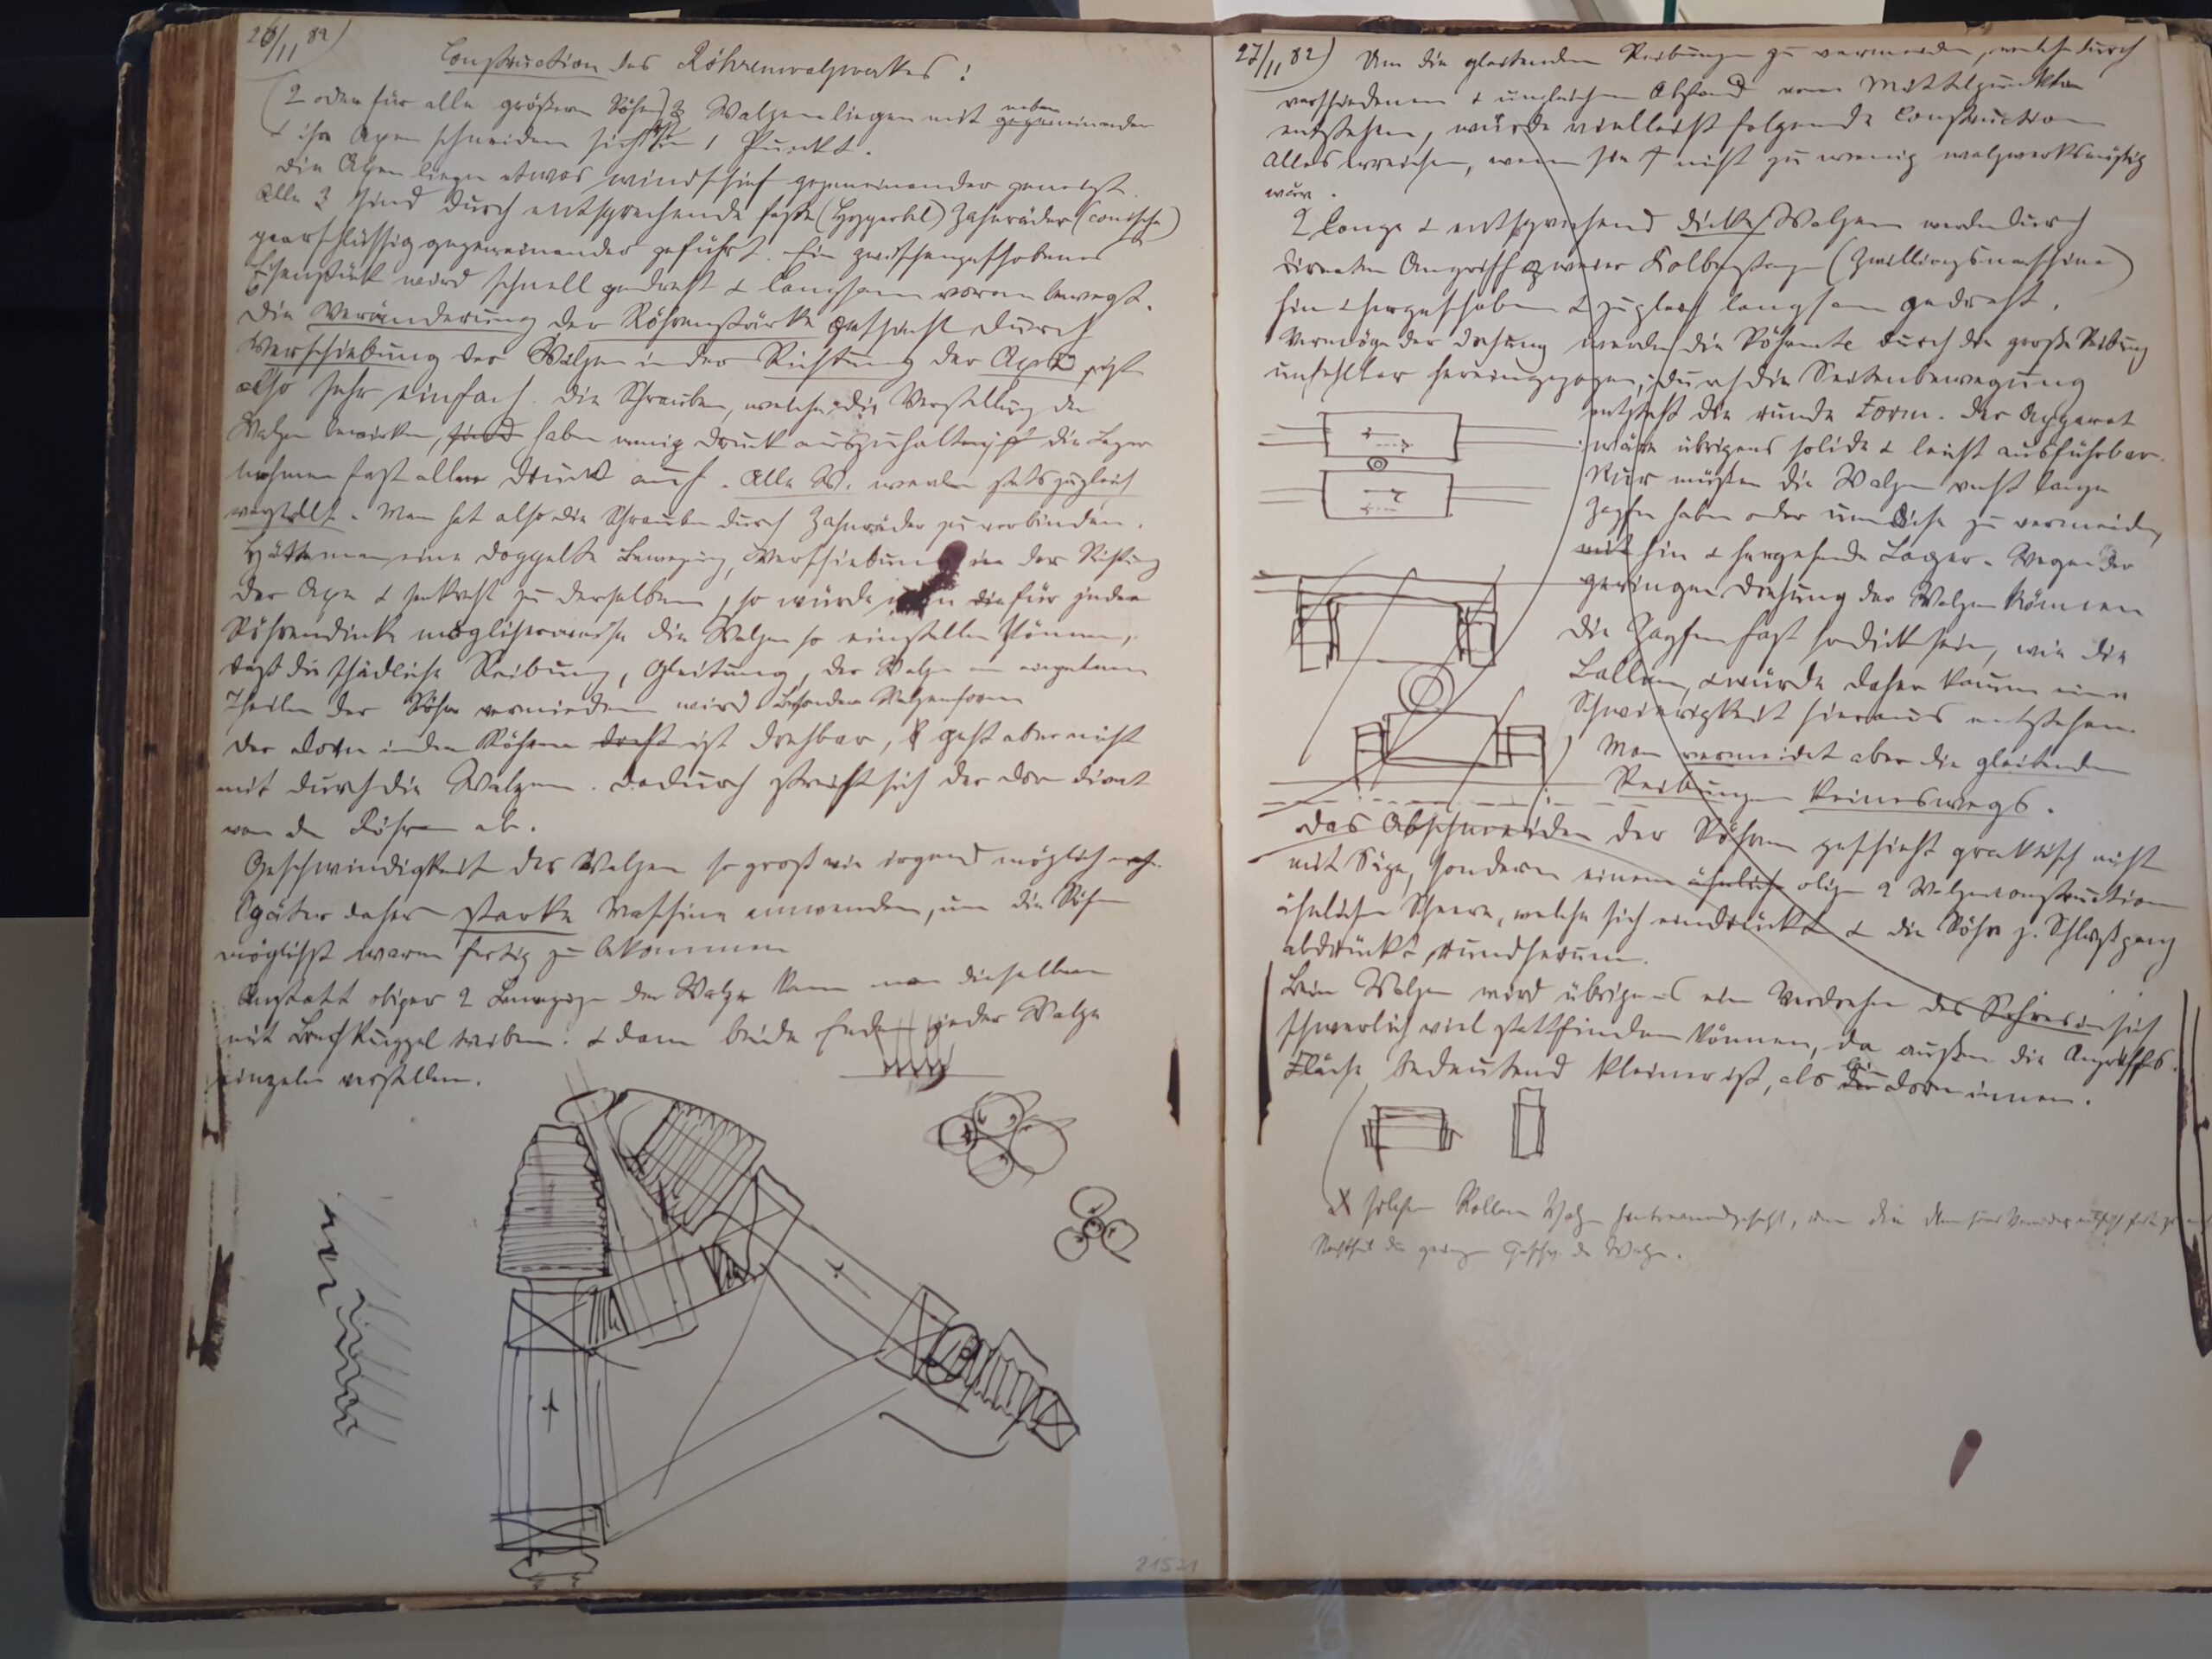 26/11 82)
Construction des Röhrenwalzwerkes!
(2 oder für alle größeren Röhren) 3 Walzen liegen mit neben gegeneinander
& ihre Axen schneiden sich in 1 Punkt.
Die Axen liegen etwas windschief gegeneinander geneigt.
Alle 3 sind durch entsprechende feste (Hyperbel) Zahnräder (conische)
zwangschlüssig gegeneinander geführt. Ein zwischengeschobenes
Eisenstück wird schnell gedreht & langsam voran bewegt.
Die Veränderung der Röhrenstärke geschieht durch
Verschiebung der Walzen in der Richtung der Axe, ist
also sehr einfach. Die Schrauben, welche die Verstellung der
Walzen bewirken, sind haben wenig Druck auszuhalten, die Lager
nehmen fast allen Druck auf. Alle W. werden stets zugleich
verstellt. Man hat also die Schrauben durch Zahnräder zu verbinden.
Hätte man eine doppelte Bewegung, Verschiebung in der Richtung
der Axe & senkrecht zu derselben, so würde man die für jede
Röhrendicke möglicherweise die Walzen so einstellen können,
daß die schädliche Reibung, Gleitung, der Walzen an einzelnen
Theilen der Röhre vermieden wird Besondere Walzenform
Der Dorn in den Röhren dreht ist drehbar, geht aber nicht
mit durch die Walzen. Dadurch streift sich der Dorn direct
von der Röhre ab.
Geschwindigkeit der Walzen so groß wie irgend möglich
Später daher starke Maschine anwenden, um die Röhre
möglichst warm fertig zu bekommen
Anstatt obiger 2 Bewegungen der Walze kann man dieselben
mit treiben. & dann beide Enden jeder Walze
einzeln verstellen.
21521
27/11 82) Um die gleitenden Reibungen zu vermeiden, welche durch
verschiedenen & ungleichen Abstand vom Mittelpunkte
entstehen, würde vielleicht folgende Construction
alles erreichen, wenn sie nicht zu wenig walzwerksmäßig
wäre.
2 lange & entsprechend dicke Walzen werden durch
directen Angriff zweier Kolbenstangen (Zwillingsmaschine)
hin & hergeschoben & zugleich langsam gedreht.
Vermöge der Drehung werden die Röhren durch die große Reibung
unfehlbar hereingezogen, durch die Seitenbewegung
entsteht die runde Form. Der Apparat
wäre übrigens solide & leicht ausführbar.
Nur müßten die Walzen recht lange
Zapfen haben oder um diese zu vermeiden,
mit hin & hergehende Lager. Wegen der
geringen Drehung der Walzen können
die Zapfen fast so dick sein, wie die
Ballen, & würde daher kaum eine
Schwierigkeit hieraus entstehen.
Man vermeidet aber die gleitenden
Reibungen keineswegs.
Das Abschneiden der Röhren geschieht praktisch nicht
mit Säge, sondern einem ähnliche obiger 2 Walzenconstruction
ähnlichen Scheere, welche sich eindrückt & die Röhre z.
abdrückt rundherum.
Beim Walzen wird übrigens ein Verdrehen des Rohres in sich
schwerlich viel stattfinden können, da außen die Angriffs-
Fläche bedeutend kleiner ist, als der Dorn innen.
X solchen Rollen hintereinandergesetzt,
Nachtheil die geringe Geschw. der Walzen.